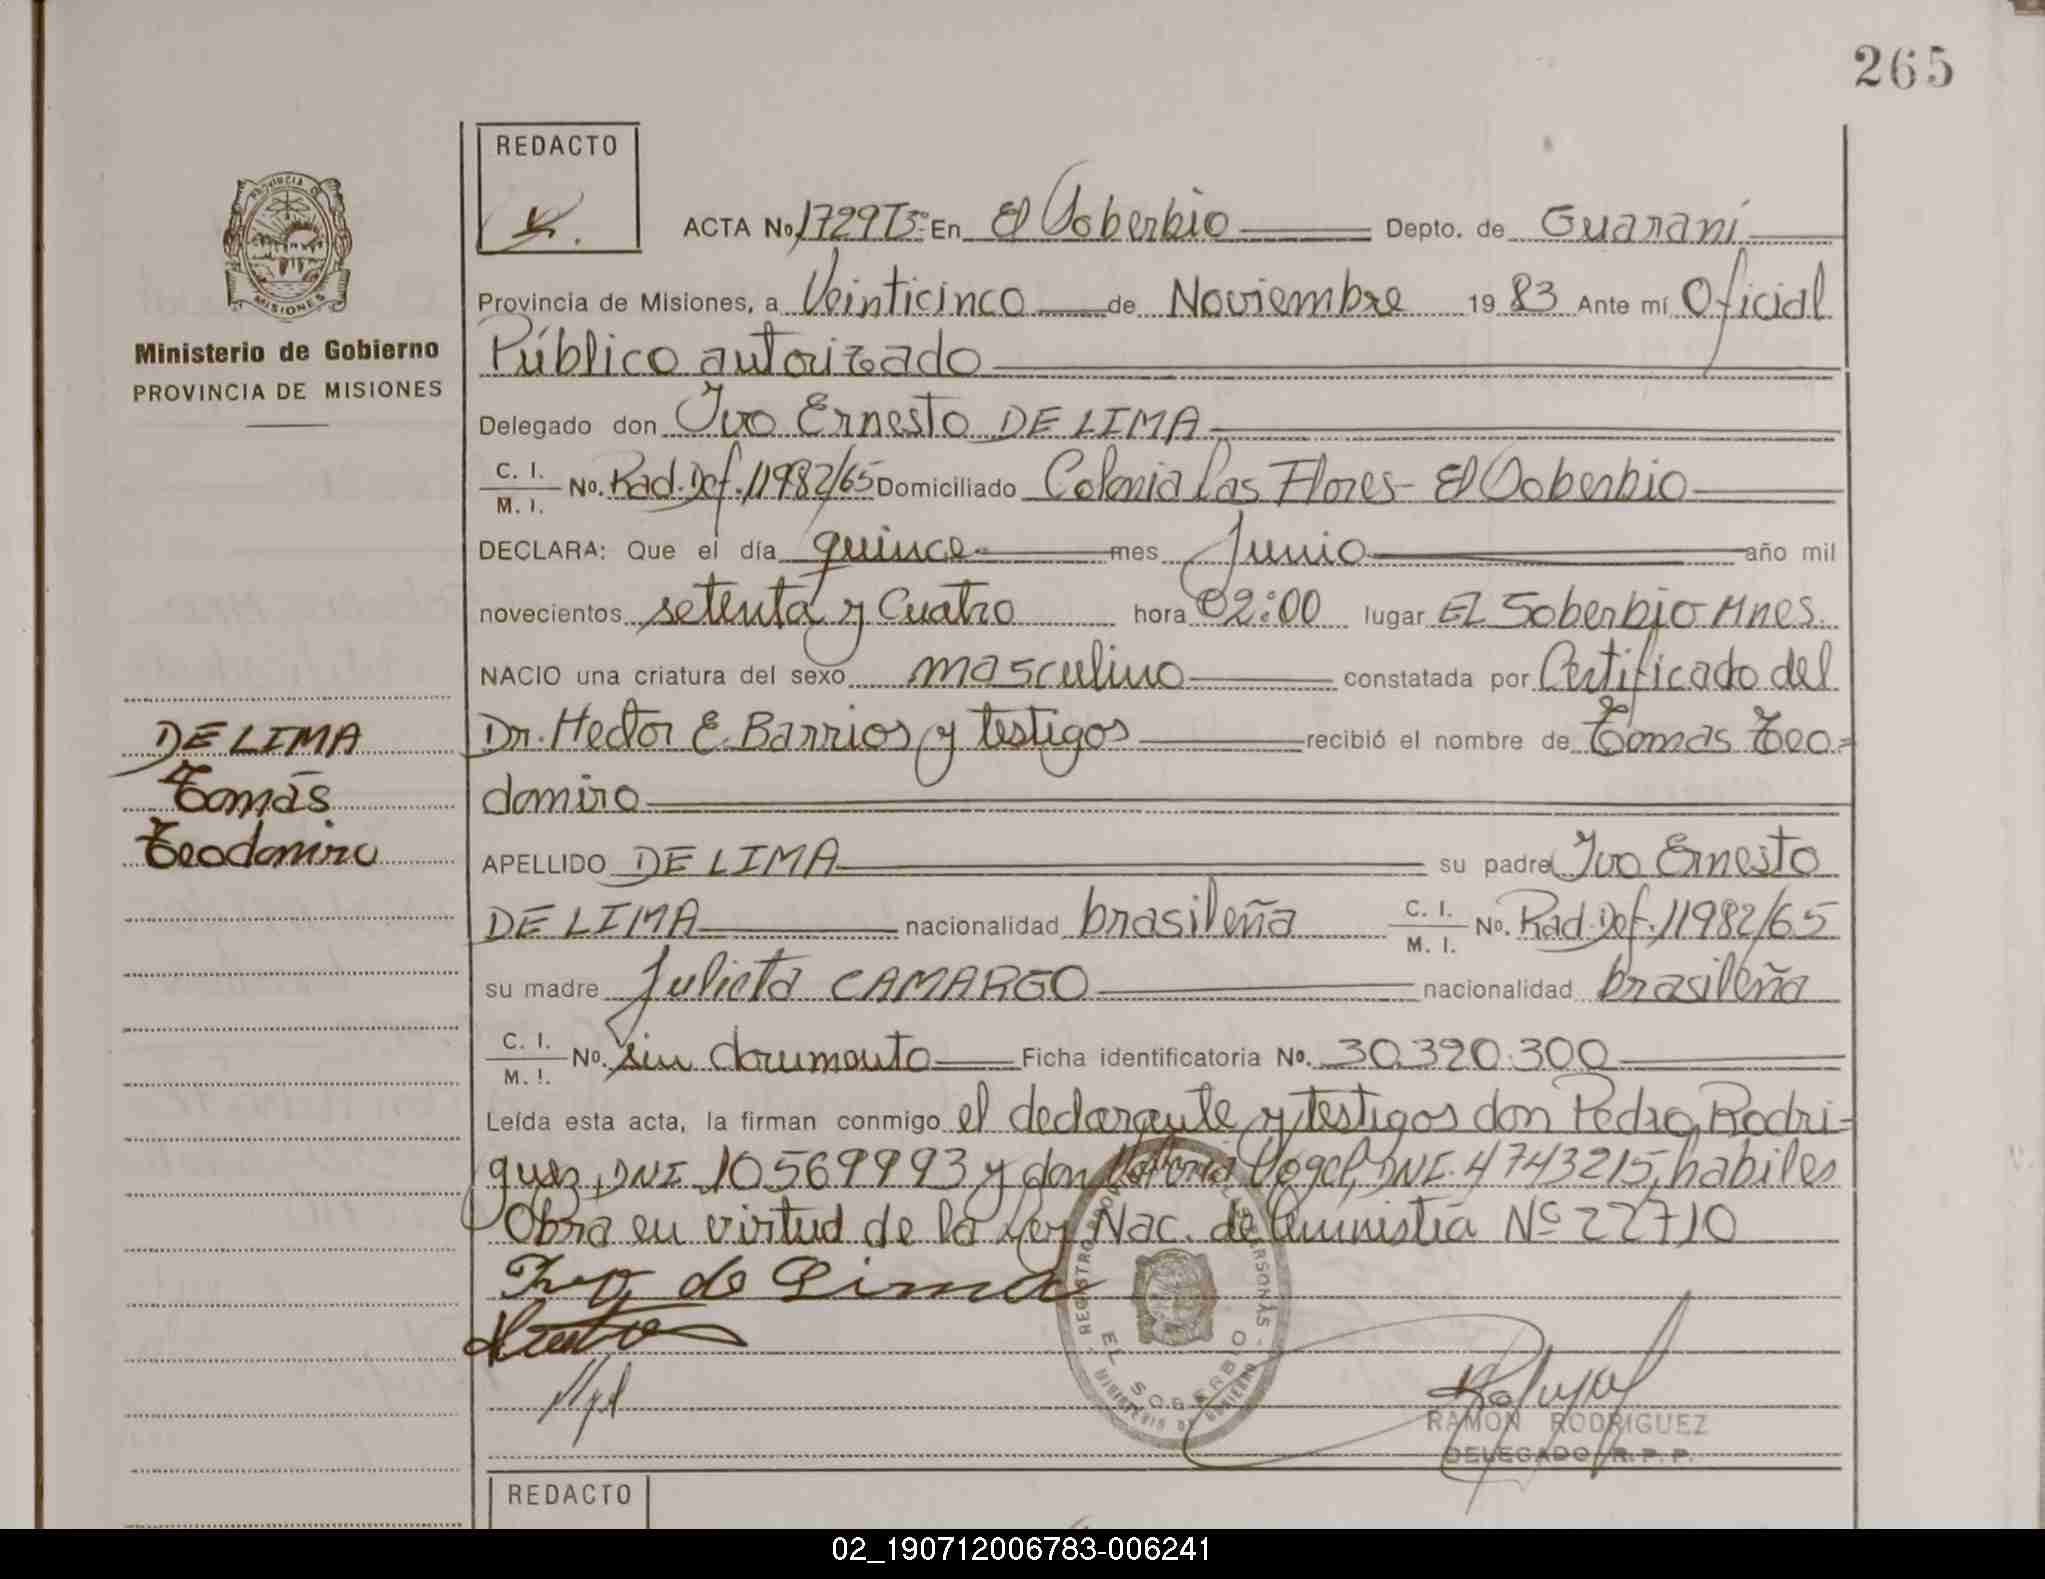 265
REDACTO
ACTA No 1729T5º En El Soberbio Depto. de Guaraní
Provincia de Misiones, a Veinticinco de Noviembre 1983 Ante mí Oficial
Ministerio de Gobierno
PROVINCIA DE MISIONES
Público autorizado
Delegado don Ivo Ernesto DE LIMA
C. I. / M. I. No. Rad. Def. 11982/65 Domiciliado Colonia Las Flores - El Soberbio
DECLARA: Que el día quince mes Junio año mil
novecientos setenta y Cuatro hora 02:00 lugar EL Soberbio Mnes.
NACIO una criatura del sexo masculino constatada por Certificado del
Dr. Hector E. Barrios y testigos recibió el nombre de Tomas Teo=
domiro
DE LIMA
Tomás
Teodomiro
APELLIDO DE LIMA su padre Ivo Ernesto
DE LIMA nacionalidad brasileña C. I. / M. I. No. Rad. Def. 11982/65
su madre Julieta CAMARGO nacionalidad brasileña
C. I. / M. I. No. sin documento Ficha identificatoria No. 30.320.300
Leída esta acta, la firman conmigo el declarante y testigos don Pedro Rodri-
guez, DNI 10569993 y don Vogel, DNI. 4743215, habiles
Obra en virtud de la Ley Nac. de Amnistía Nº 22710
Ivo de Lima
REGISTRO PROV. DE LAS PERSONAS
EL SOBERBIO
MINISTERIO DE GOBIERNO
RAMON RODRIGUEZ
DELEGADO R. P. P.
REDACTO
02_190712006783-006241